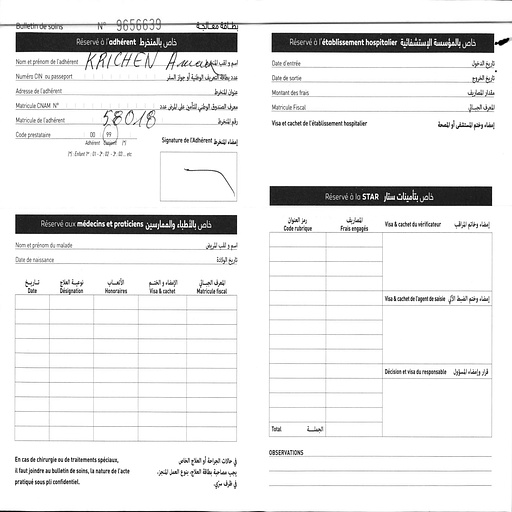 Bulletin de soins N° 9656639 بطاقة معالجة
Réservé à l'adhérent خاص بالمنخرط
Nom et prénom de l'adhérent KRICHEN اسم و لقب المنخرط
Numéro CIN ou passeport عدد بطاقة التعريف الوطنية أو جواز السفر
Adresse de l'adhérent عنوان المنخرط
Matricule CNAM N° معرف الصندوق الوطني للتأمين على المرض عدد
Matricule de l'adhérent 58018 رقم المنخرط
Code prestataire 00 99
Adhérent Conjoint (*)
(*) : Enfant 1er : 01 - 2è : 02 - 3è : 03 ... etc
Signature de l'Adhérent إمضاء المنخرط
Réservé aux médecins et praticiens خاص بالأطباء والممارسين
Nom et prénom du malade اسم و لقب المريض
Date de naissance تاريخ الولادة
تاريخ نوعية العلاج الأتعاب الإمضاء و الختم المعرف الجبائي
Date Désignation Honoraires Visa & cachet Matricule fiscal
En cas de chirurgie ou de traitements spéciaux,
il faut joindre au bulletin de soins, la nature de l'acte
pratiqué sous pli confidentiel.
في حالات الجراحة أو العلاج الخاص
يجب مصاحبة بطاقة العلاج، بنوع العمل المنجز،
في ظرف سري.
Réservé à l'établissement hospitalier خاص بالمؤسسة الإستشفائية
Date d'entrée تاريخ الدخول
Date de sortie تاريخ الخروج
Montant des frais مقدار المصاريف
Matricule Fiscal المعرف الجبائي
Visa et cachet de l'établissement hospitalier إمضاء وختم المستشفى أو المصحة
Réservé à la STAR خاص بتأمينات ستار
رمز العنوان المصاريف
Code rubrique Frais engagés
Visa & cachet du vérificateur إمضاء وخاتم المراقب
Visa & cachet de l'agent de saisie إمضاء وختم الضبط الآلي
Décision et visa du responsable قرار وإمضاء المسؤول
Total الجملة
OBSERVATIONS